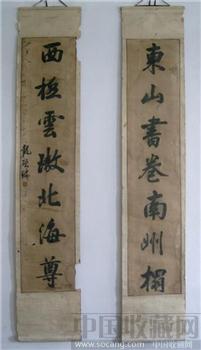 東山書卷南州榻
西極雲墩北海尊
中国收藏网
http://www.socang.com/中国收藏网